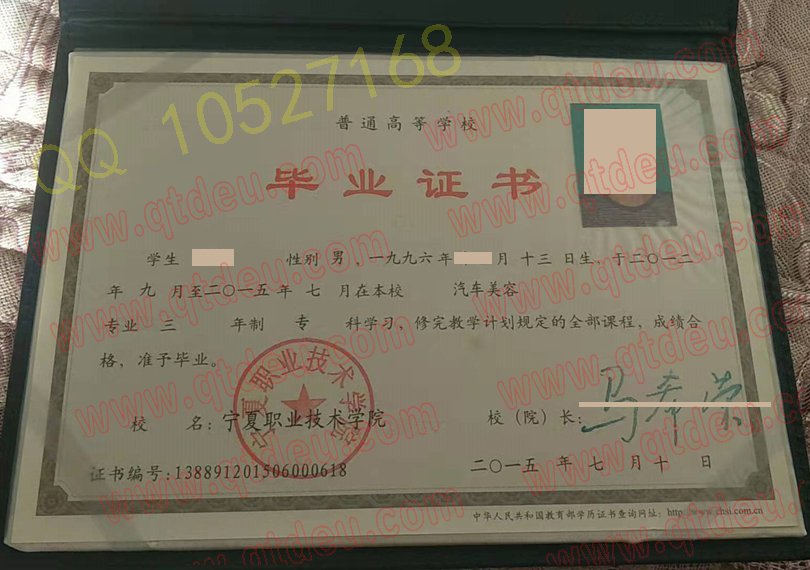 QQ 10527168
普通高等学校
毕业证书
学生 性别 男 ，一九九六 年 月 十三 日生，于二〇一二
年 九 月至二〇一五年 七 月在本校 汽车美容
专业 三 年制 专 科学习，修完教学计划规定的全部课程，成绩合
格，准予毕业。
宁夏职业技术学院
校 名：宁夏职业技术学院 校（院）长：
证书编号：138891201506000618 二〇一五 年 七 月 十 日
中华人民共和国教育部学历证书查询网址：http://www.chsi.com.cn
www.qtdeu.com
www.qtdeu.com
www.qtdeu.com
www.qtdeu.com
www.qtdeu.com
www.qtdeu.com